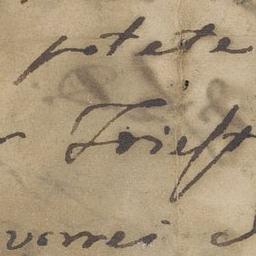 potete
Triest
vorrei